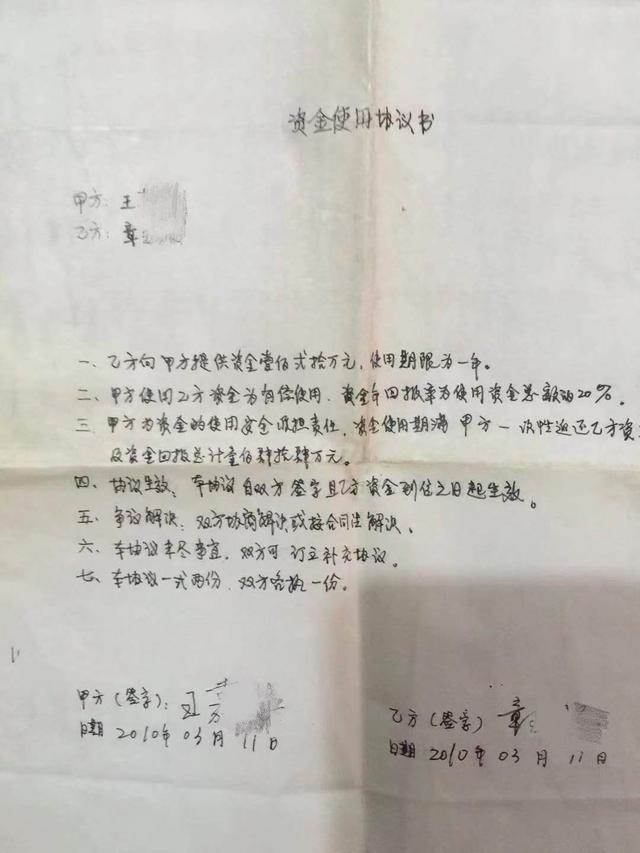 资金使用协议书
甲方：王
乙方：章
一、乙方向甲方提供资金壹佰贰拾万元，使用期限为一年。
二、甲方使用乙方资金为有偿使用，资金年回报率为使用资金总额的20%。
三、甲方为资金的使用安全承担责任，资金使用期满甲方一次性返还乙方资
及资金回报总计壹佰肆拾肆万元。
四、协议生效：本协议自双方签字且乙方资金到位之日起生效。
五、争议解决：双方协商解决或按合同法解决。
六、本协议未尽事宜，双方可订立补充协议。
七、本协议一式两份，双方各执一份。
甲方（签字）：王
日期 2010年03月11日
乙方（签字）章
日期 2010年03月11日